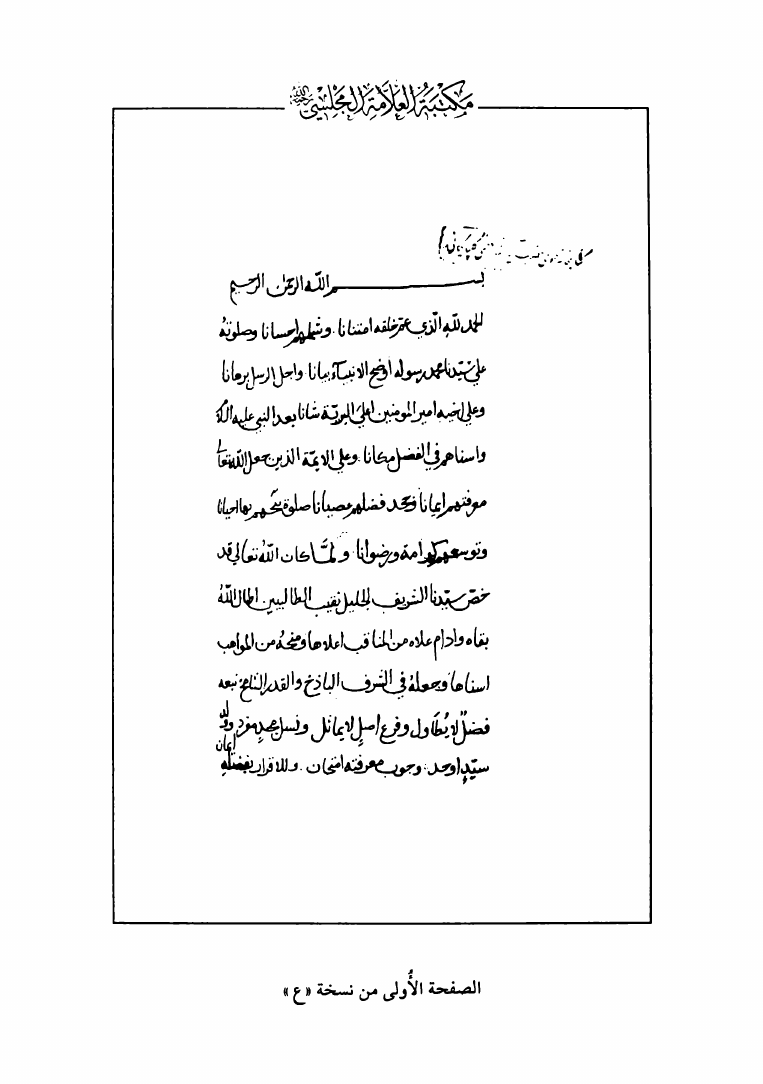 مكتبة العلامة المجلسي
بسم الله الرحمن الرحيم
الحمد لله الذي عم خلقه امتنانا وشملهم احسانا وصلوته
على سيدنا محمد رسوله اوضح الانبياء بيانا واجل الرسل برهانا
وعلى اخيه امير المومنين اعلى البرية شانا بعد النبي عليه
واسناهم في الفضل مكانا وعلى الايمة الذين جعل الله تعالى
معرفتهم ايمانا وجحد فضلهم عصيانا صلوة بها احيانا
وتوسعهم كرامة ورضوانا ولمَّا كان الله تعالى قد
خصّ سيّدنا الشريف الجليل نقيب الطالبيين اطال اللهُ
بقاه وادام علاه من المناقب اعلاها ومنحهُ من المواهب
اسناها وجعلهُ في الشرف الباذخ والقدر الشامخ
فضلٌ لا يُطَاول وفرع اصلٍ لا يماثل ونسل مجدٍ مفرد وولد
سيّدٍ اوحد وجوب معرفته امتحان وللاقرار بفضله ايمان
الصفحة الأُولى من نسخة «ع»